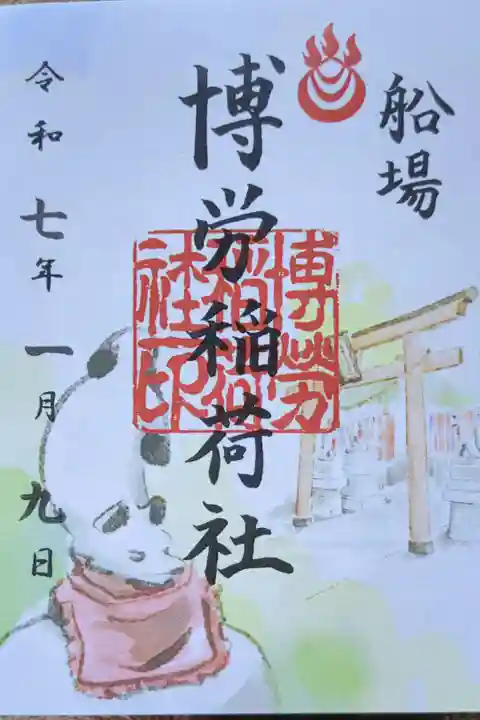 船場
博労稲荷社
博勞
稲荷
社印
令和七年一月九日